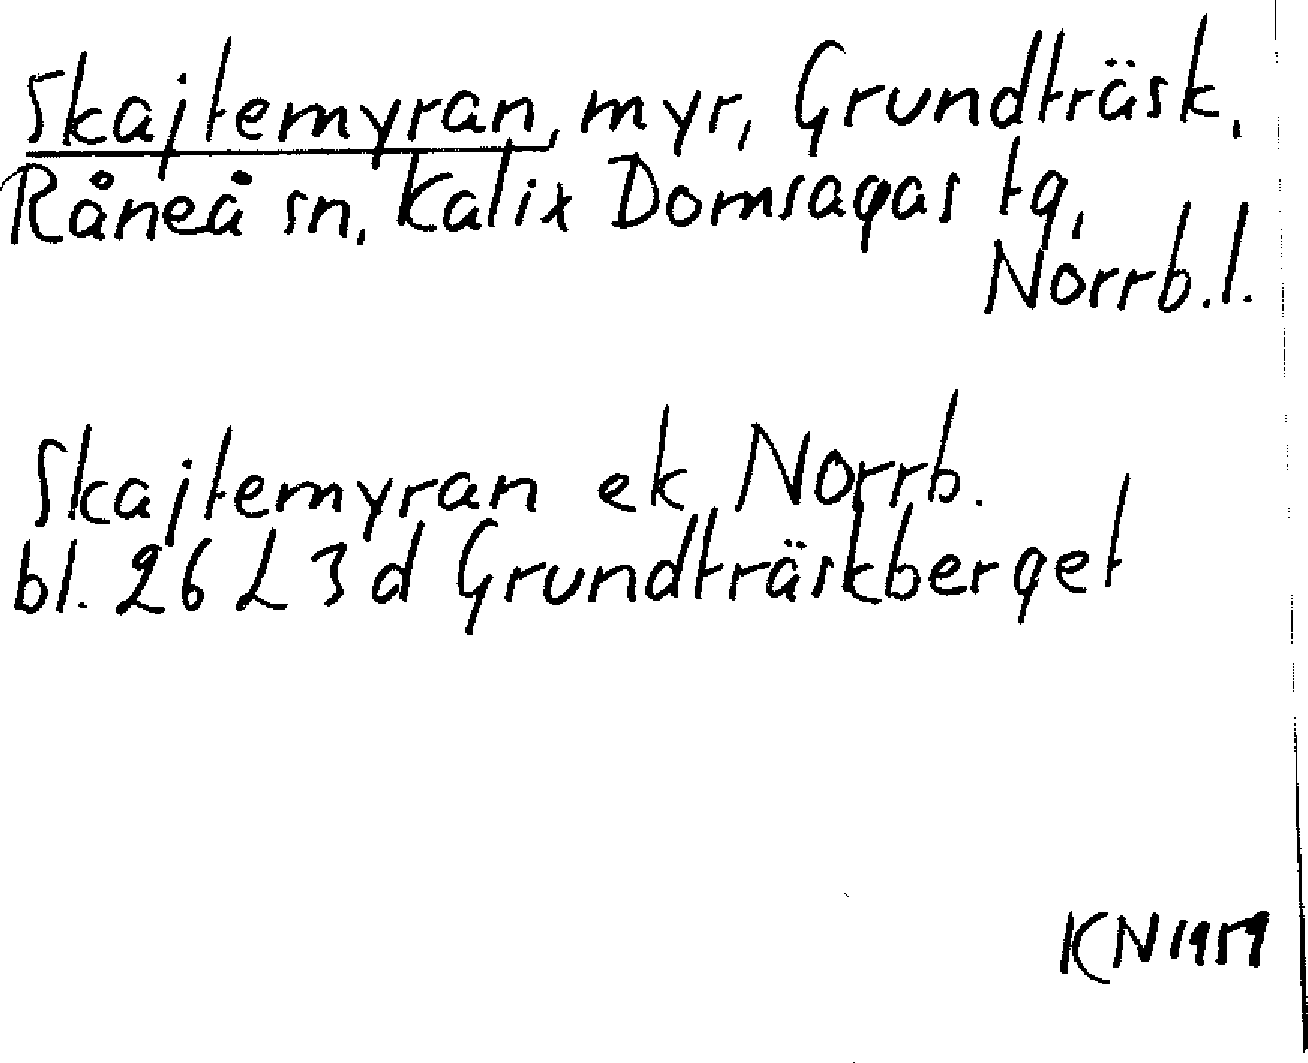 Skajtemyran, myr, Grundträsk,
Råneå sn, Kalix Domsagas tg,
Norrb.l.
Skajtemyran ek Norrb.
bl. 26 L 3 d Grundträskberget
KN 1959